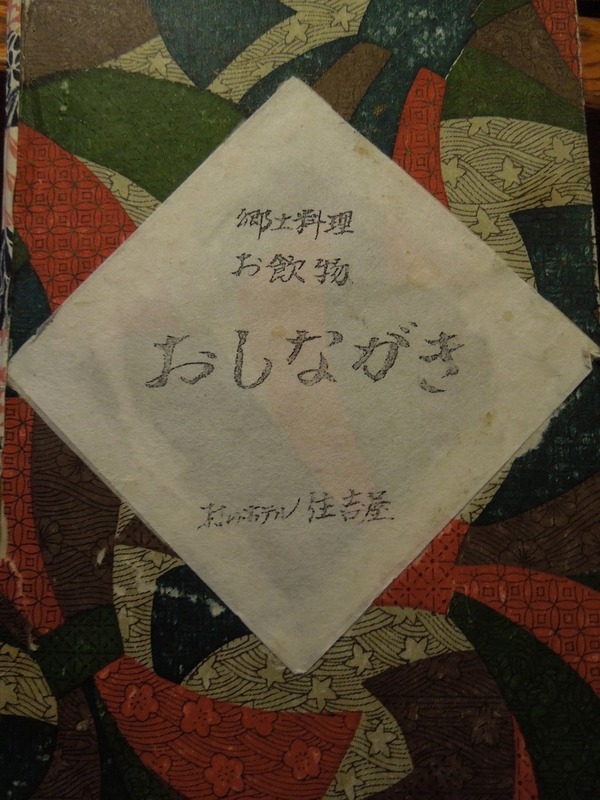 郷土料理
お飲物
おしながき
村のホテル 住吉屋